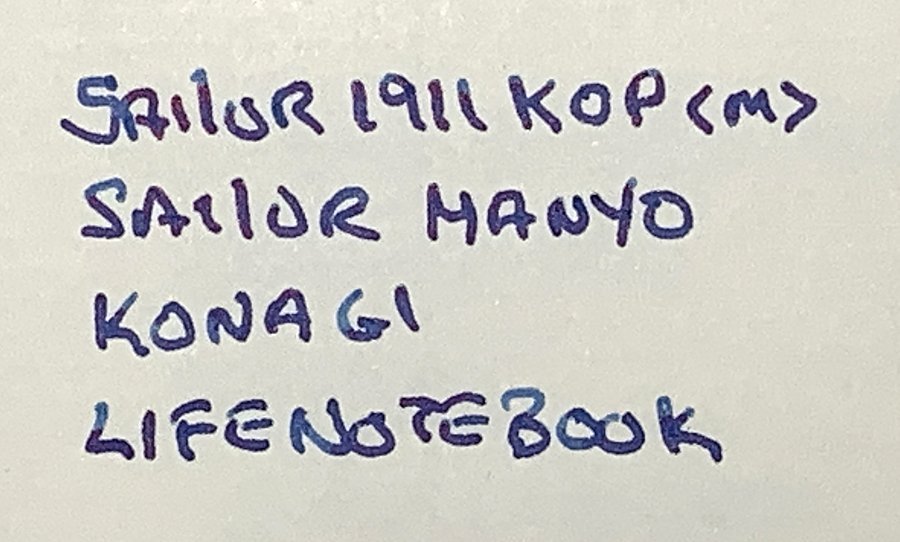 SAILOR 1911 KOP <M>
SAILOR MANYO
KONAGI
LIFE NOTEBOOK